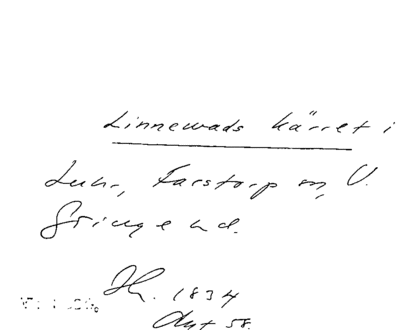 Linnewads kärret i
Luhr, Farstorp sn, V.
Göinge hd.
Jh. 1834
Akt 58.